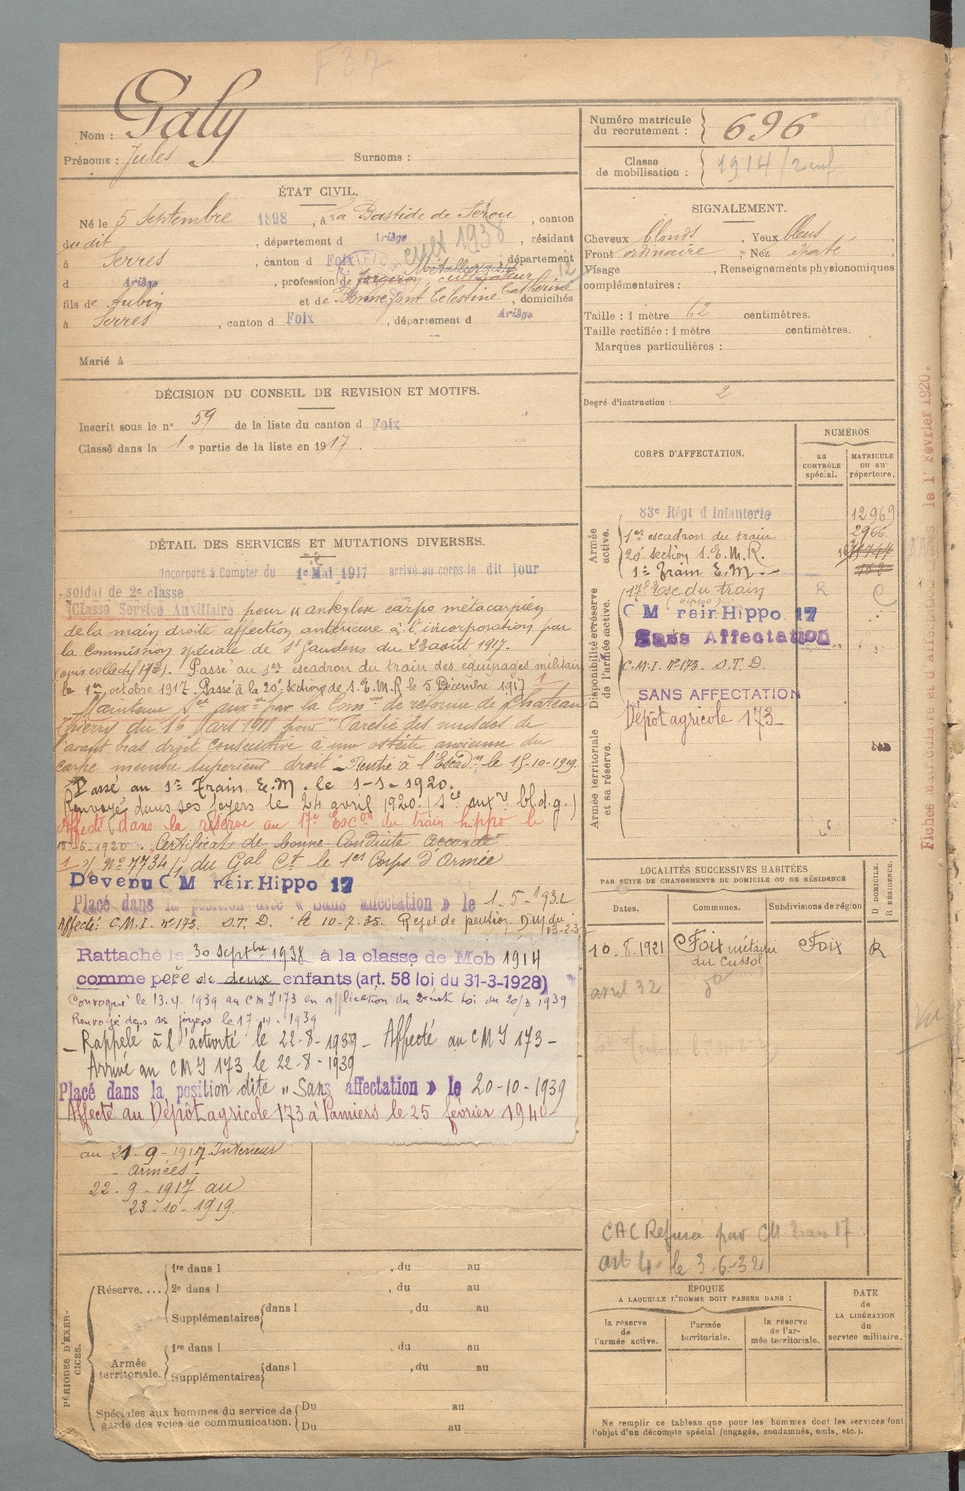 F 37
Nom : Galy
Prénoms : Jules Surnoms :
ÉTAT CIVIL.
Né le 5 Septembre 1898, à La Bastide de Sérou, canton
dudit, département d Ariège, résidant
à Serres, canton d Foix, département
d Ariège, profession de forgeron cultivateur
fils de Aubin et de Bonnefont Celestine Catherine, domiciliés
à Serres, canton d Foix, département d Ariège
Marié à
DÉCISION DU CONSEIL DE REVISION ET MOTIFS.
Inscrit sous le n° 59 de la liste du canton d Foix
Classé dans la 1e partie de la liste en 1917.
DÉTAIL DES SERVICES ET MUTATIONS DIVERSES.
Incorporé à Compter du 1er Mai 1917 arrivé au corps le dit jour
soldat de 2e classe
Classé Service Auxiliaire pour « ankylose carpo métacarpien
de la main droite affection antérieure à l'incorporation par
la Commission spéciale de St Gaudens du 23 août 1917.
Passé au 1er escadron du train des équipages militaires
le 1er octobre 1917. Passé à la 20e section de S.E.M.R le 5 Décembre 1917
Maintenu Sce auxre par la Comon de réforme de Chateau
Thierry du 16 Mars 1918 pour
l'avant bras droit consécutive à une ostéite ancienne du
carpe membre supérieur droit. Rentré à l'Escadon le 15-10-1919.
Passé au 1er Train E.M. le 1-1-1920.
Renvoyé dans ses foyers le 24 avril 1920.
Affecté dans la réserve au 17e Escon du train hippo le
15-6-1920. Certificat de bonne Conduite accordé
du Gal Ct le 1er Corps d'Armée
Devenu C M rair. Hippo 17
Placé dans la position dite « Sans affectation » le 1-5-1932
Affecté C.M.I. n° 173. S.T.D. le 10-7-35. Rejet de pension
Rattaché le 30 septbre 1938 à la classe de Mob 1914
comme père de deux enfants (art. 58 loi du 31-3-1928)
Convoqué le 13.4.1939 au CMI 173 en application du loi du 20/3 1939
Renvoyé dans ses foyers le 17 4 1939
– Rappelé à l'activité le 22-8-1939 – Affecté au CMI 173 –
Arrivé au CMI 173 le 22-8-1939
Placé dans la position dite « Sans affectation » le 20-10-1939
Affecté au Dépôt agricole 173 à Pamiers le 25 février 1940
au 21-9-1917 Intérieur
- Armées -
22-9-1917 au
23-10-1919.
PÉRIODES D'EXERCICES.
Réserve....
1re dans l , du au
2e dans l , du au
Supplémentaires dans l , du au
Armée territoriale.
1re dans l , du au
Supplémentaires dans l , du au
Spéciales aux hommes du service de garde des voies de communication.
Du au
Du au
Numéro matricule du recrutement : 696
Classe de mobilisation : 1914
SIGNALEMENT.
Cheveux blonds. Yeux bleus
Front ordinaire; Nez
Visage , Renseignements physionomiques
complémentaires :
Taille : 1 mètre 62 centimètres.
Taille rectifiée : 1 mètre centimètres.
Marques particulières :
Degré d'instruction : 2
CORPS D'AFFECTATION.
NUMÉROS
au CONTRÔLE spécial.
MATRICULE ou au répertoire.
Armée active.
83e Régt d'Infanterie 12969
1er escadron du train 2966
20e section S.E.M.R.
1er Train E.M.
Disponibilité et réserve de l'armée active.
17e Esc du train R
(hippo)
C M rair. Hippo 17
Sans Affectation
C.M.I. n° 173. S.T.D.
SANS AFFECTATION
Dépôt agricole 173
Armée territoriale et sa réserve.
LOCALITÉS SUCCESSIVES HABITÉES
PAR SUITE DE CHANGEMENTS DE DOMICILE OU DE RÉSIDENCE
Dates. Communes. Subdivisions de région D. DOMICILE. R. RÉSIDENCE.
10.8.1921 Foix Foix R
avril 32
CAC Refusée par CM 17
art 4 le 3-6-32
ÉPOQUE
A LAQUELLE L'HOMME DOIT PASSER DANS :
la réserve de l'armée active.
l'armée territoriale.
la réserve de l'armée territoriale.
DATE de LA LIBÉRATION du service militaire.
Ne remplir ce tableau que pour les hommes dont les services font
l'objet d'un décompte spécial (engagés, condamnés, omis, etc.).
le 1er Février 1920.